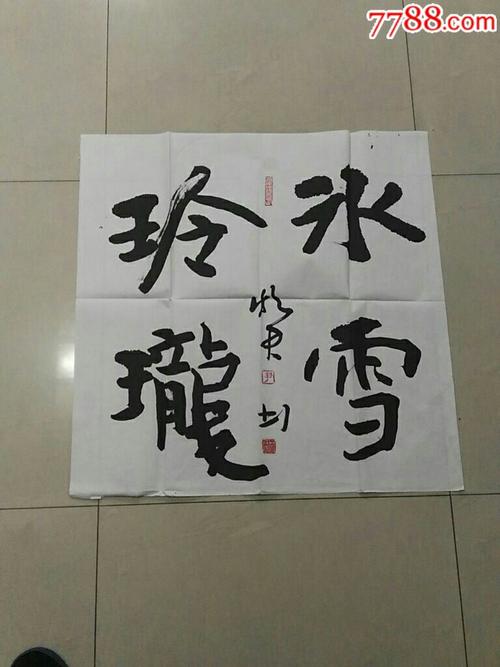 7788.com
冰雪
玲瓏